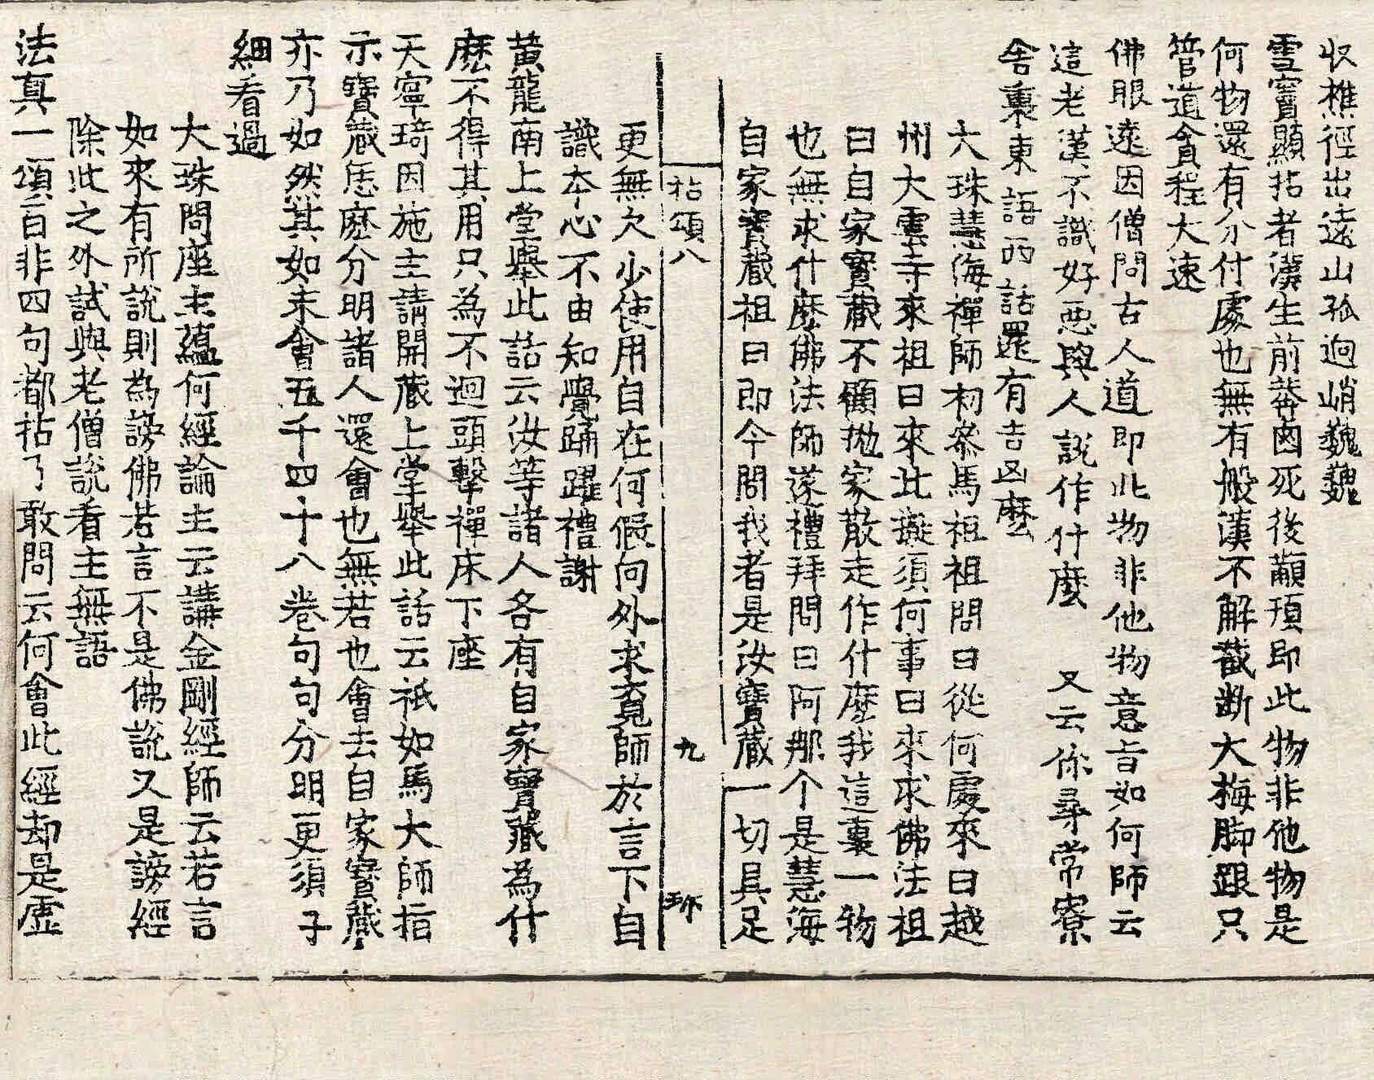 収樵徑出遠山孤迥峭巍巍
雪竇顯拈者漢生前莽鹵死後顢頇即此物非他物是
何物還有分付處也無有般漢不解截断大梅脚跟只
管道貪程大速
佛眼遠因僧問古人道即此物非他物意旨如何師云
這老漢不識好惡與人説作什麽　又云你尋常寮
舍裏東語西話還有吉凶麽
大珠慧海禪師初叅馬祖祖問曰從何處來曰越
州大雲寺來祖曰來此擬須何事曰來求佛法祖
曰自家寶藏不顧抛家散走作什麽我這裏一物
也無求什麽佛法師遂禮拜問曰阿那个是慧海
自家寶藏祖曰即今問我者是汝寶藏一切具足
拈頌八　九　珎
更無欠少使用自在何假向外求覔師於言下自
識本心不由知覺踊躍禮謝
黃龍南上堂舉此話云汝等諸人各有自家寶藏為什
麽不得其用只為不迴頭擊禪床下座
天寧琦因施主請開藏上堂舉此話云祇如馬大師指
示寶藏恁麽分明諸人還會也無若也會去自家寶藏
亦乃如然其如未會五千四十八卷句句分明更須子
細看過
大珠問座主蘊何經論主云講金剛經師云若言
如來有所説則為謗佛若言不是佛説又是謗經
除此之外試與老僧説看主無語
法真一頌百非四句都拈了敢問云何會此經却是虛